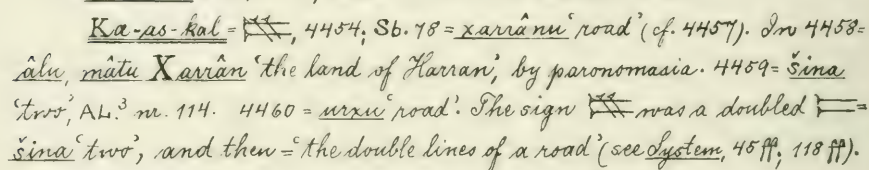 Ka-as-kal = 𒆜, 4454; Sb. 78 = xarrânu 'road' (cf. 4457). In 4458 =
âlu, mâtu Xarrân 'the land of Harran', by paronomasia. 4459 = šina
'two', AL.³ nr. 114. 4460 = urxu 'road'. The sign 𒆜 was a doubled =
šina 'two', and then = 'the double lines of a road' (see System, 45 ff; 118 ff).